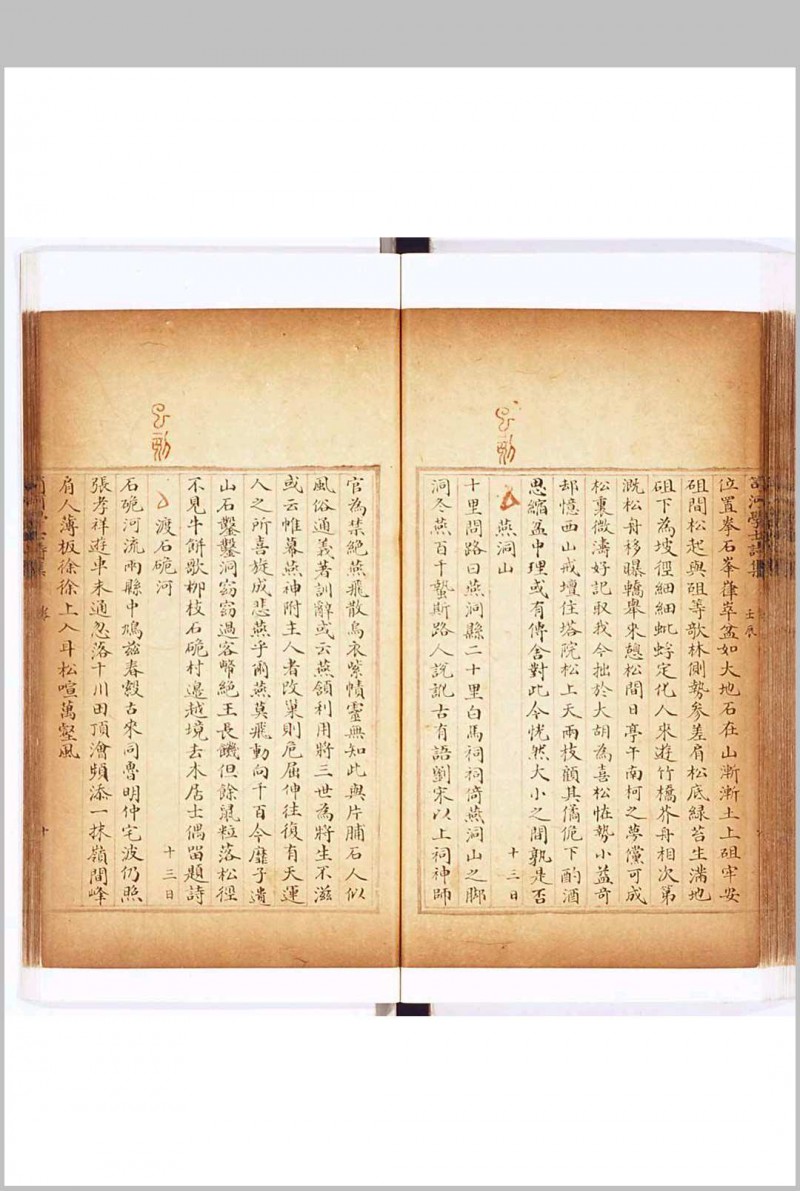 位置拳石峯嶐崒盆如大地石在山漸漸土上砠牢安
砠間松起與砠等欹林側勢參差肩松底綠苔生滿地
砠下為坡徑細細虬蜉定化人來遊竹橋芥舟相次第
溉松舟移曝轎舉來憩松間日亭午南柯之夢儻可成
松裏微濤好記取我今拙於大胡為喜松恠勢小益奇
却憶西山戒壇住塔院松上天兩枝顧其僑佹下酌酒
思縮盆中理或有傳舍對此今恍然大小之間孰是否
燕洞山 十三日
十里問路曰燕洞縣二十里白馬祠祠倚燕洞山之脚
洞冬燕百千蟄斯路人說訛古有語劉宋以上祠神師
官為禁絕燕飛散烏衣紫幘靈無知此與片脯石人似
風俗通義著訓辭或云燕頷利用將三世為將生不滋
或云帷幕燕神附主人者改巢則危屈伸往復有天運
人之所喜旋成悲燕乎爾燕莫飛動向千百今靡孑遺
山石鑿鑿洞窈窈過客幣絕王長饑但餘鼠粒落松徑
不見牛餅歌柳枝石硊村邊越境去木居士偶留題詩
渡石硊河 十三日
石硊河流兩縣中鳩茲春縠古來同魯明仲宅波仍照
張孝祥遊車未通忽落千川田頂澮頻添一抹嶺間峰
肩人薄板徐徐上入耳松喧萬壑風